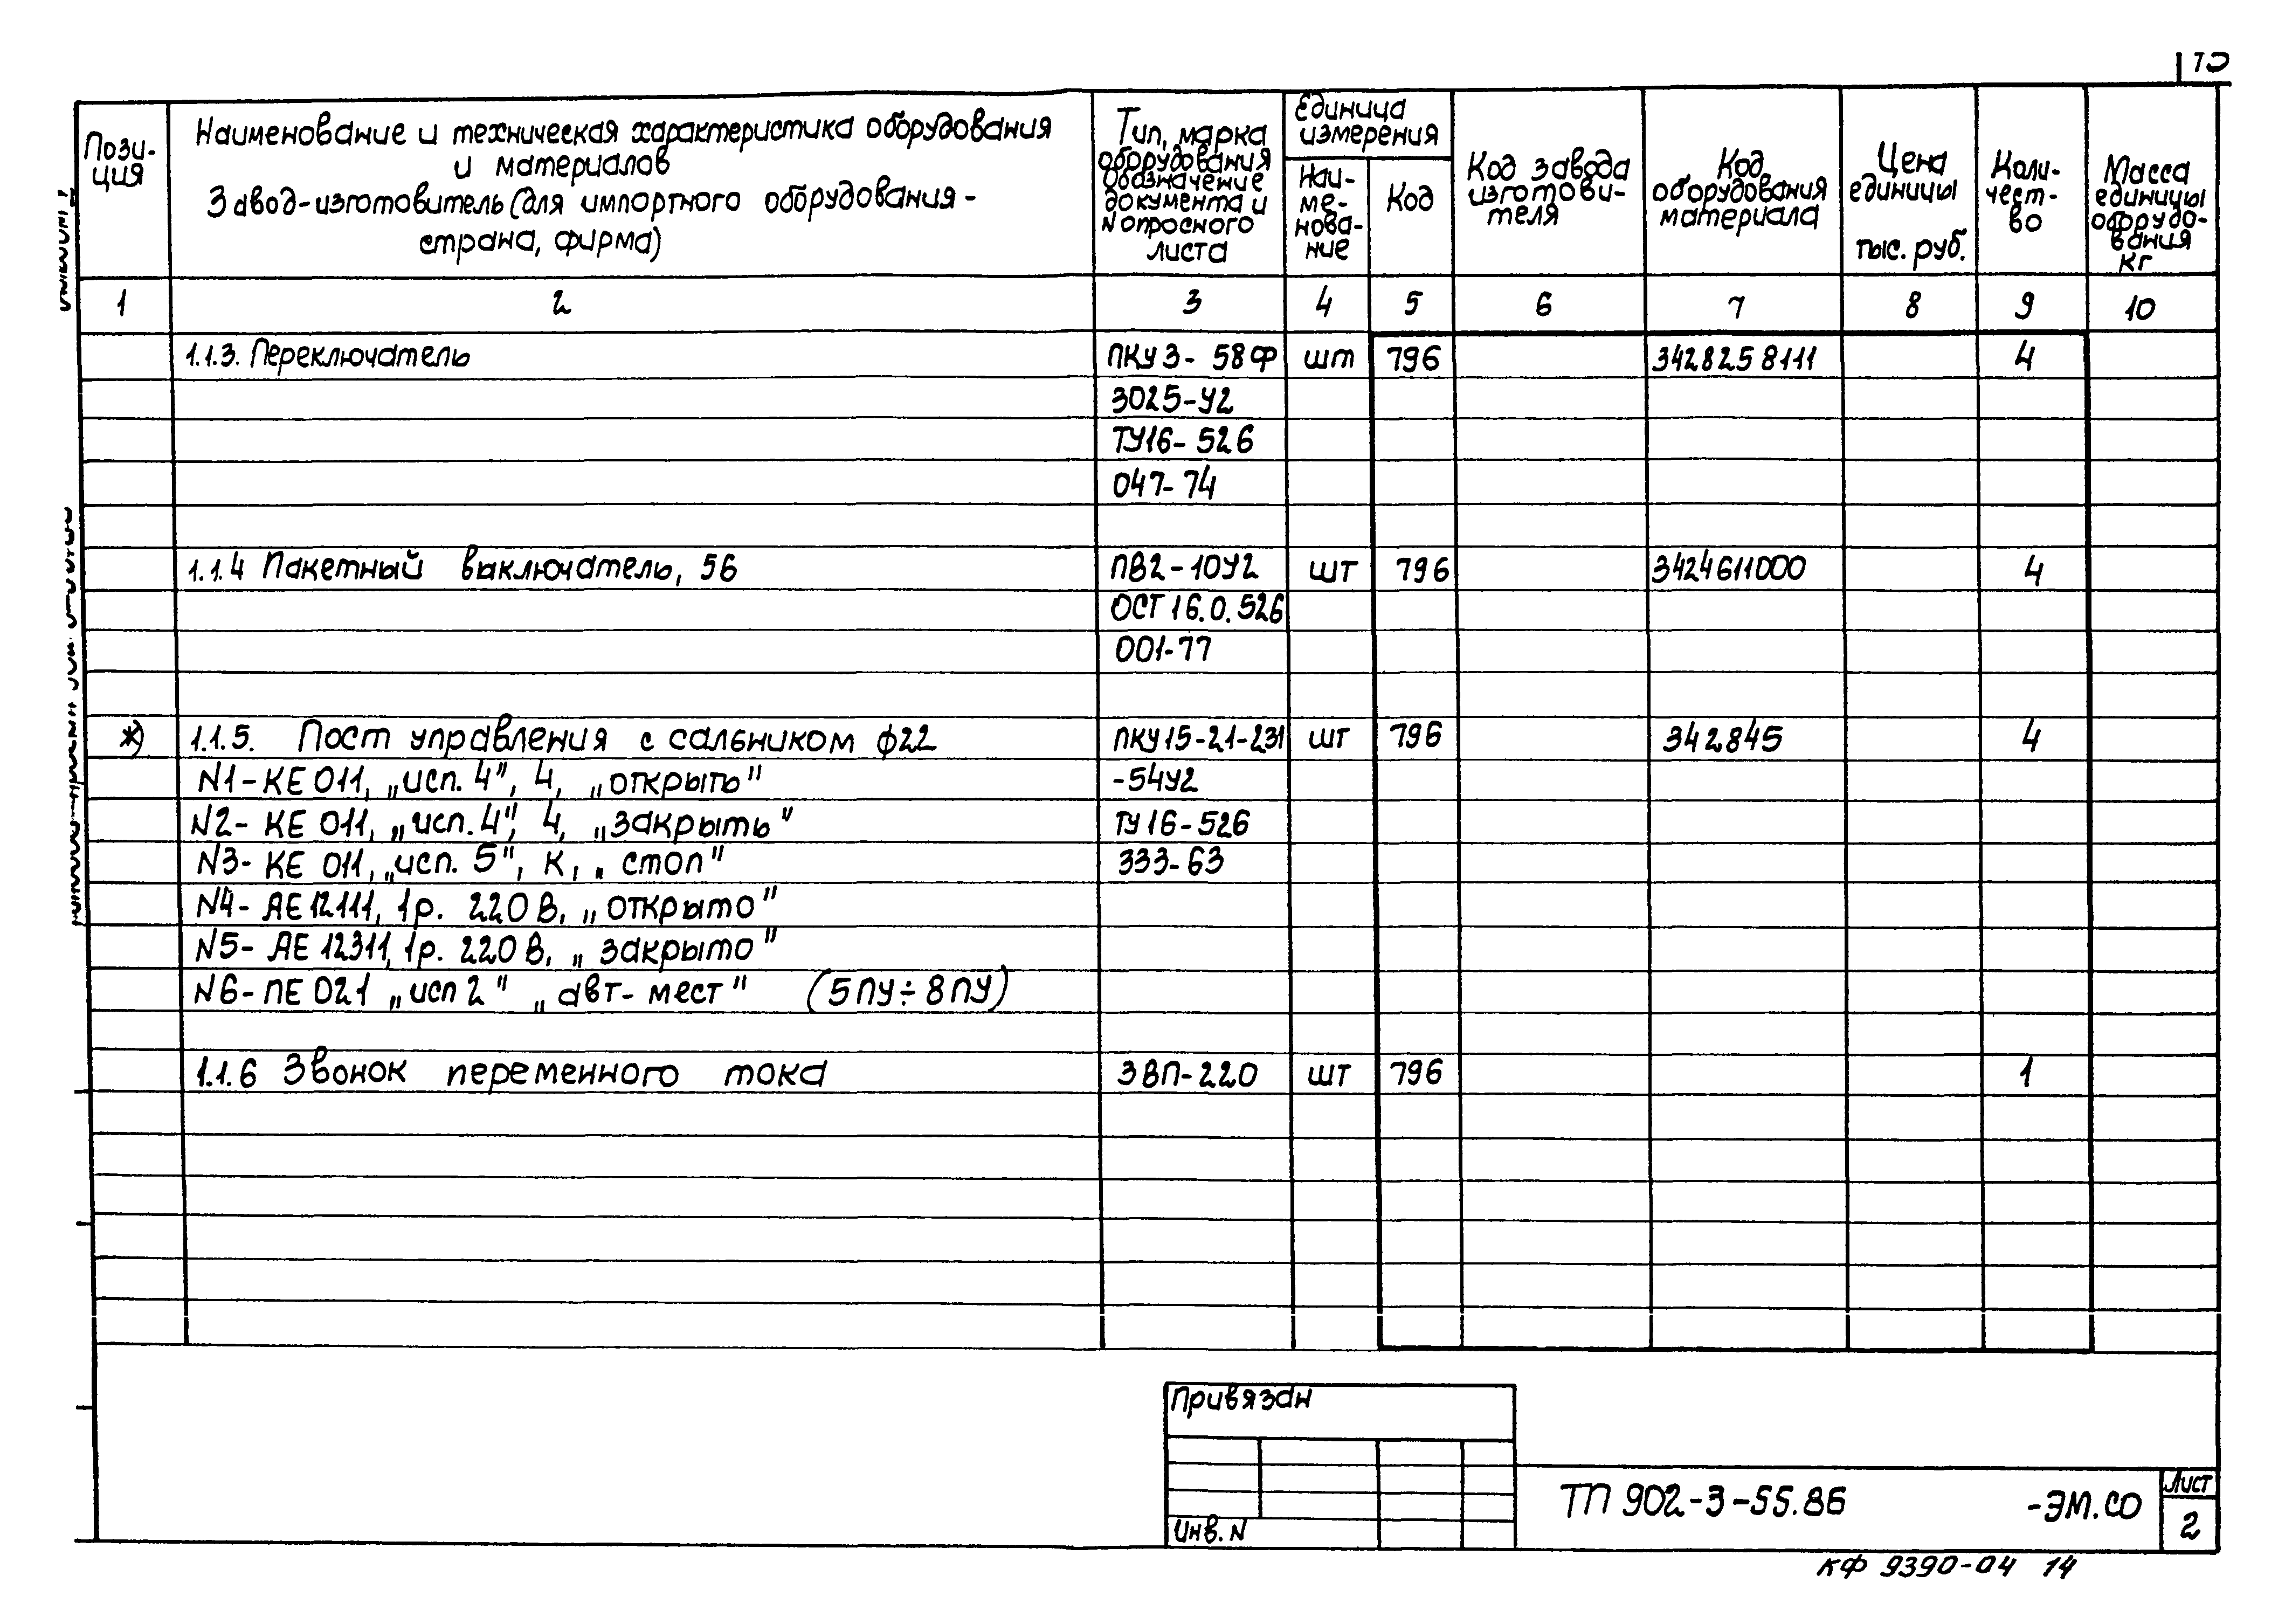 Пози-
ция
Наименование и техническая характеристика оборудования
и материалов
Завод-изготовитель (для импортного оборудования -
страна, фирма)
Тип, марка
оборудования
Обозначение
документа и
N опросного
листа
Единица
измерения
Наи-
ме-
нова-
ние
Код
Код завода
изготови-
теля
Код
оборудования
материала
Цена
единицы
тыс. руб.
Коли-
чест-
во
Масса
единицы
оборудо-
вания
кг
1 2 3 4 5 6 7 8 9 10
1.1.3. Переключатель ПКУ3- 58Ф шт 796 3428258111 4
3025-У2
ТУ16- 526
047-74
1.1.4 Пакетный выключатель, 56 ПВ2-10У2 шт 796 3424611000 4
ОСТ 16.0.526
001-77
*) 1.1.5. Пост управления с сальником ф22 ПКУ15-21-231 шт 796 342845 4
N1-КЕ 011, „исп. 4", 4, „открыть" -54У2
N2- КЕ 011, „исп. 4", 4, „закрыть" ТУ16-526
N3- КЕ 011, „исп. 5", К, „ стоп" 333-63
N4- АЕ12111, 1р. 220В, „открыто"
N5- АЕ 12311, 1р. 220В, „ закрыто"
N6-ПЕ 021 „исп 2" „авт- мест" (5ПУ÷8ПУ)
1.1.6 Звонок переменного тока ЗВП-220 шт 796 1
Привязан
Инв. N
ТП 902-3-55.86 -ЭМ.СО
Лист
2
КФ 9390-04 14